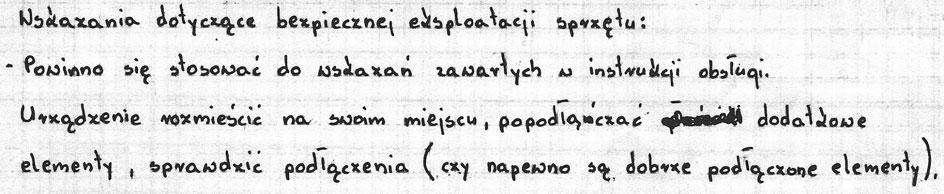 Wskazania dotyczące bezpiecznej eksploatacji sprzętu:
- Powinno się stosować do wskazań zawartych w instrukcji obsługi.
Urządzenie rozmieścić na swoim miejscu, popodłączać dodatkowe
elementy, sprawdzić podłączenia (czy napewno są dobrze podłączone elementy).